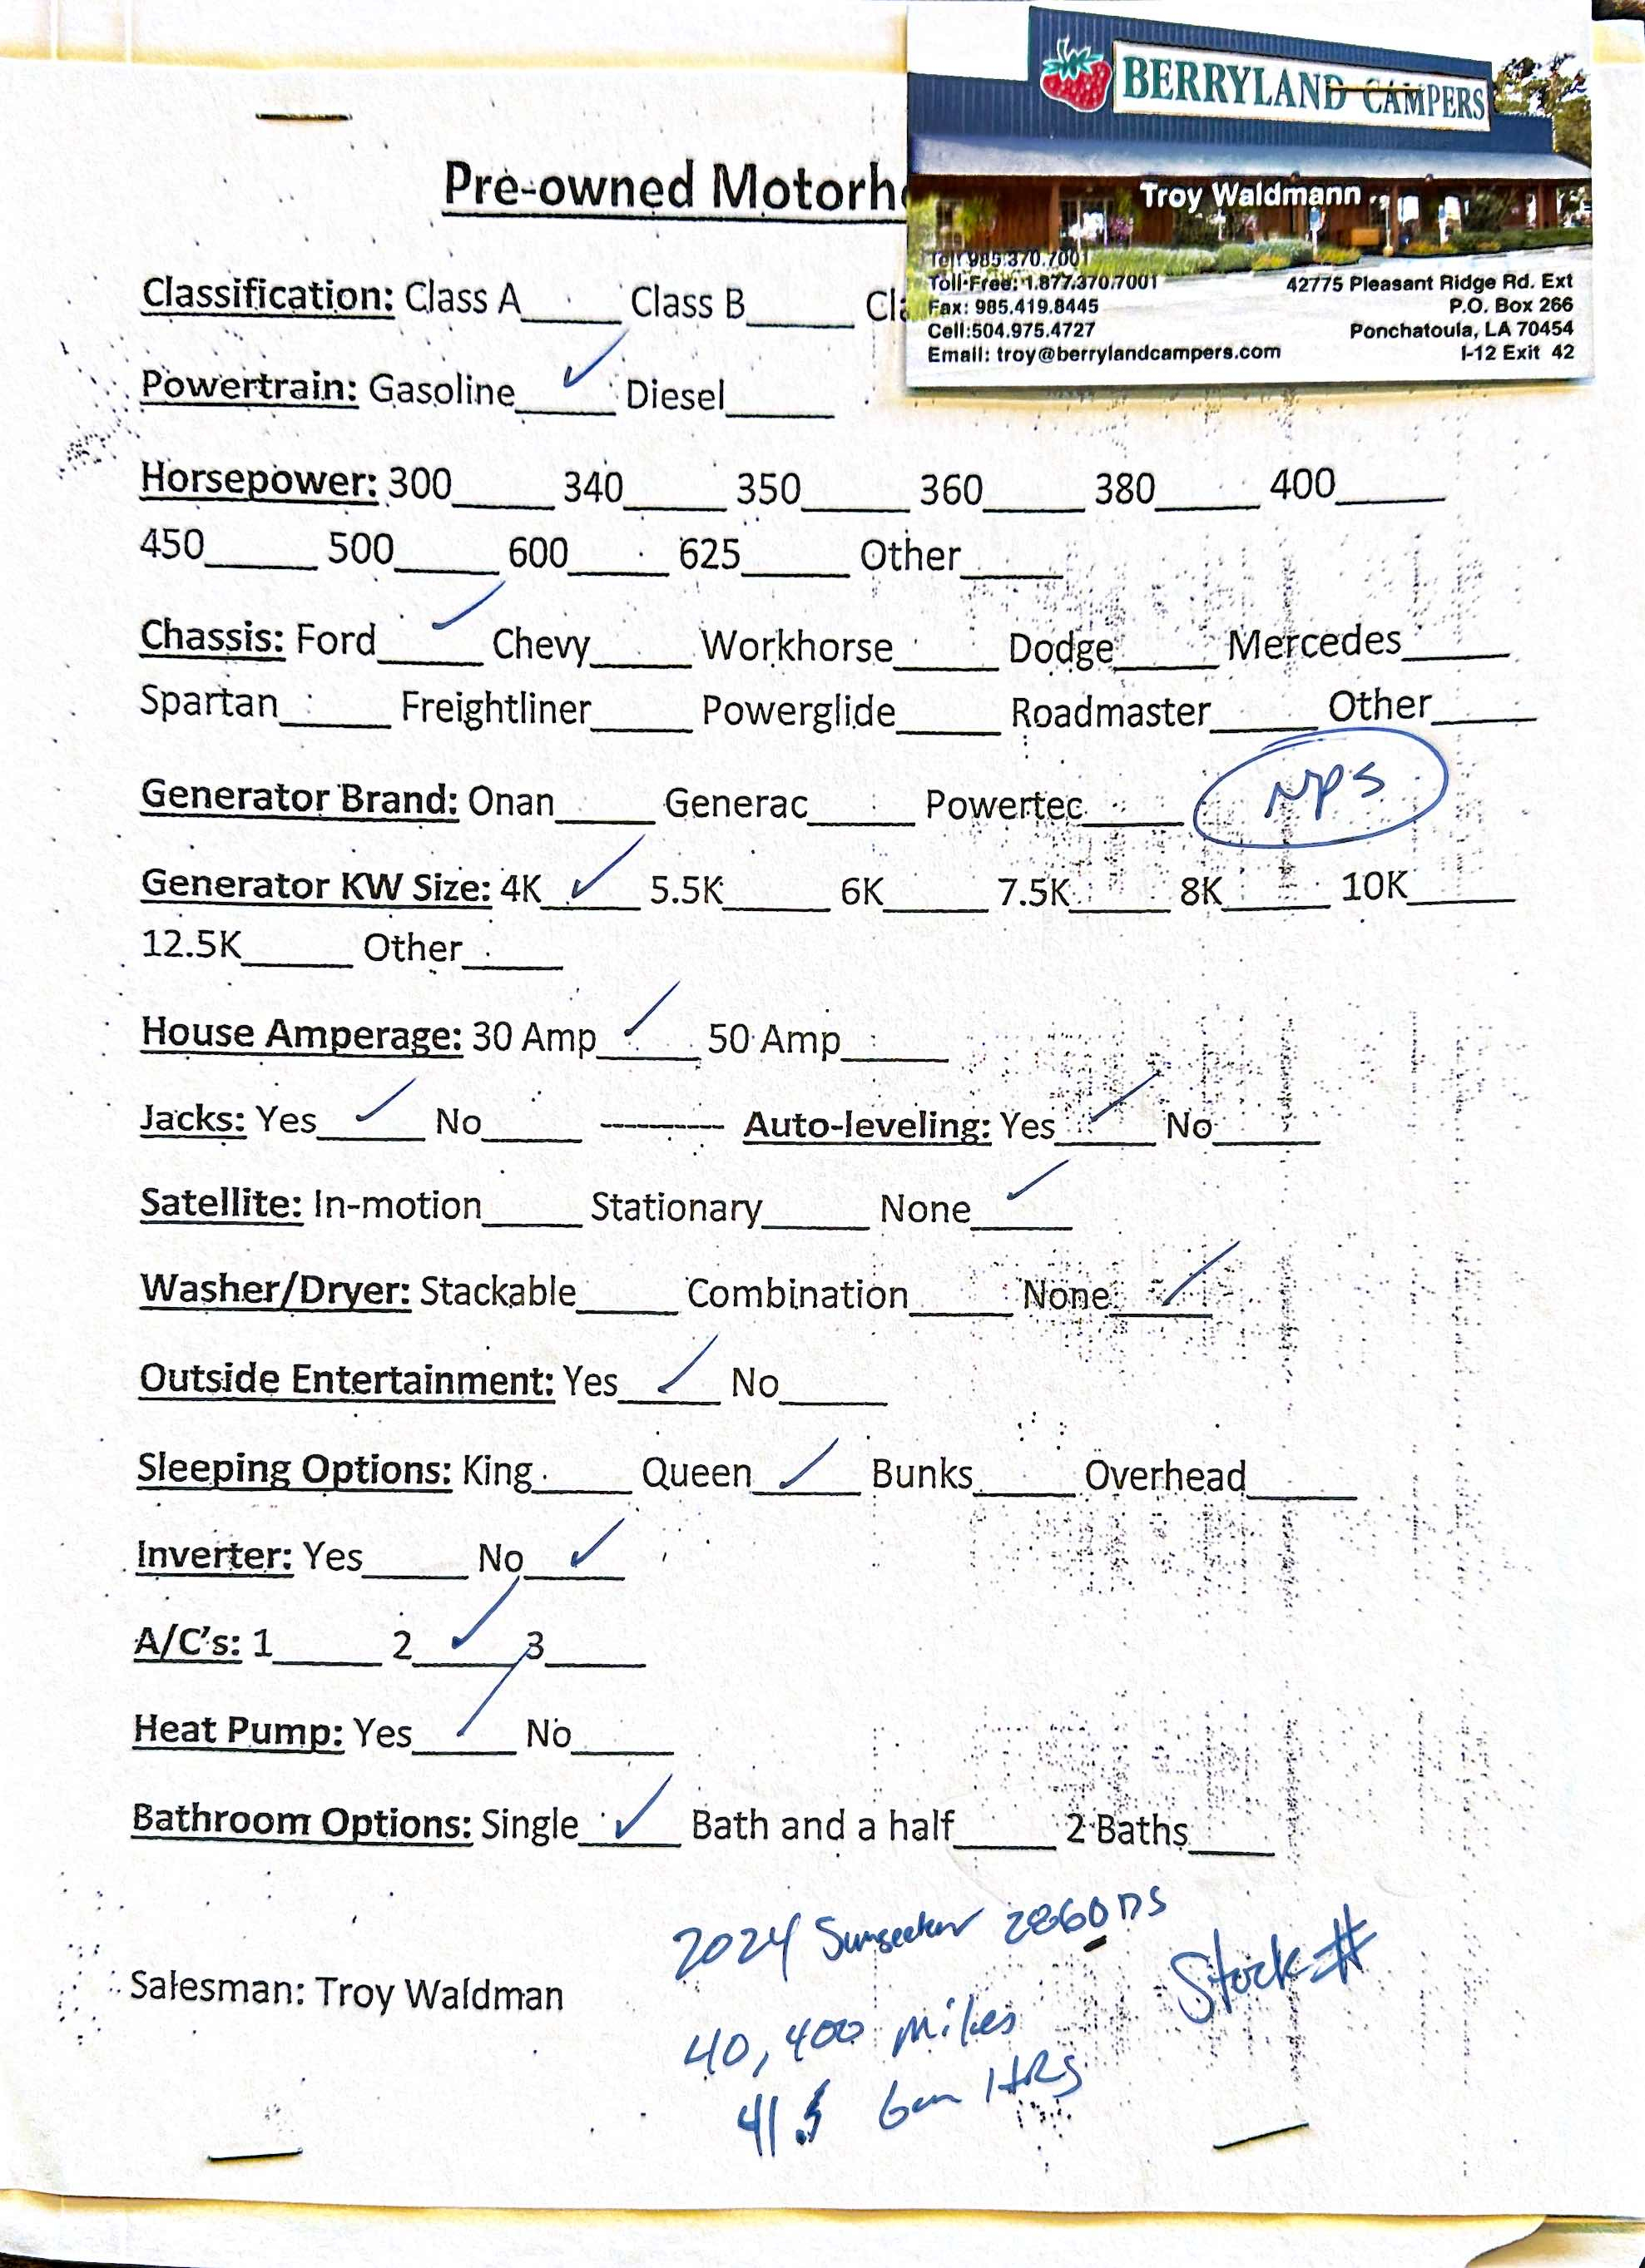 BERRYLAND CAMPERS
Troy Waldmann
Tel: 985.370.7001
Toll-Free: 1.877.370.7001
Fax: 985.419.8445
Cell:504.975.4727
Email: troy@berrylandcampers.com
42775 Pleasant Ridge Rd. Ext
P.O. Box 266
Ponchatoula, LA 70454
I-12 Exit 42
Pre-owned Motorh
Classification: Class A_____ Class B_____ Cla
Powertrain: Gasoline__✓__ Diesel_____
Horsepower: 300_____ 340_____ 350_____ 360_____ 380_____ 400_____
450_____ 500_____ 600_____ 625_____ Other_____
Chassis: Ford__✓__ Chevy_____ Workhorse_____ Dodge_____ Mercedes_____
Spartan_____ Freightliner_____ Powerglide_____ Roadmaster_____ Other_____
Generator Brand: Onan_____ Generac_____ Powertec_____ NPS
Generator KW Size: 4K__✓__ 5.5K_____ 6K_____ 7.5K_____ 8K_____ 10K_____
12.5K_____ Other_____
House Amperage: 30 Amp__✓__ 50 Amp_____
Jacks: Yes__✓__ No_____ --------- Auto-leveling: Yes__✓__ No_____
Satellite: In-motion_____ Stationary_____ None__✓__
Washer/Dryer: Stackable_____ Combination_____ None__✓__
Outside Entertainment: Yes__✓__ No_____
Sleeping Options: King_____ Queen__✓__ Bunks_____ Overhead_____
Inverter: Yes_____ No__✓__
A/C's: 1_____ 2__✓__ 3_____
Heat Pump: Yes__✓__ No_____
Bathroom Options: Single__✓__ Bath and a half_____ 2 Baths____
2024 Sunseeker 2860DS
Stock #
Salesman: Troy Waldman
40,400 miles
Gen HRS